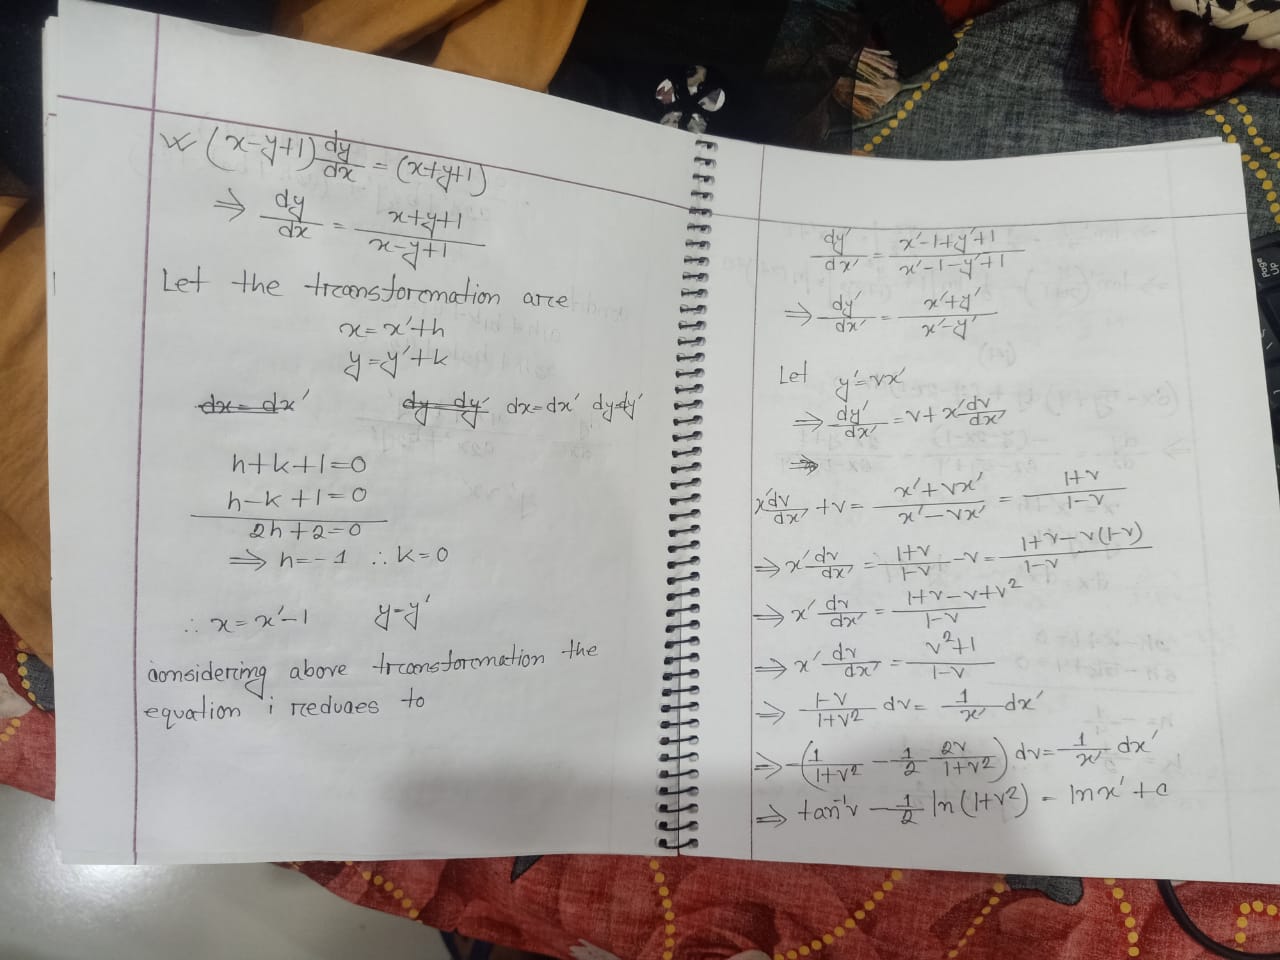 (x-y+1) dy/dx = (x+y+1)
⇒ dy/dx = x+y+1/x-y+1
Let the transformation are
x = x'+h
y = y'+k
dx = dx' dy dy' dx = dx' dy=dy'
h+k+1=0
h-k+1=0
2h+2=0
⇒ h=-1 ∴ k=0
∴ x = x'-1 y-y'
considering above transformation the
equation i reduces to
dy'/dx' = x'-1+y'+1/x'-1-y'+1
⇒ dy'/dx' = x'+y'/x'-y'
Let y'=vx'
⇒ dy'/dx' = v + x'dv/dx'
⇒
x'dv/dx' + v = x'+vx'/x'-vx' = 1+v/1-v
⇒ x' dv/dx' = 1+v/1-v - v = 1+v-v(1-v)/1-v
⇒ x' dv/dx' = 1+v-v+v²/1-v
⇒ x' dv/dx' = v²+1/1-v
⇒ 1-v/1+v² dv = 1/x' dx'
⇒ (1/1+v² - 1/2 2v/1+v²) dv = 1/x' dx'
⇒ tan⁻¹v - 1/2 ln(1+v²) = ln x' + c